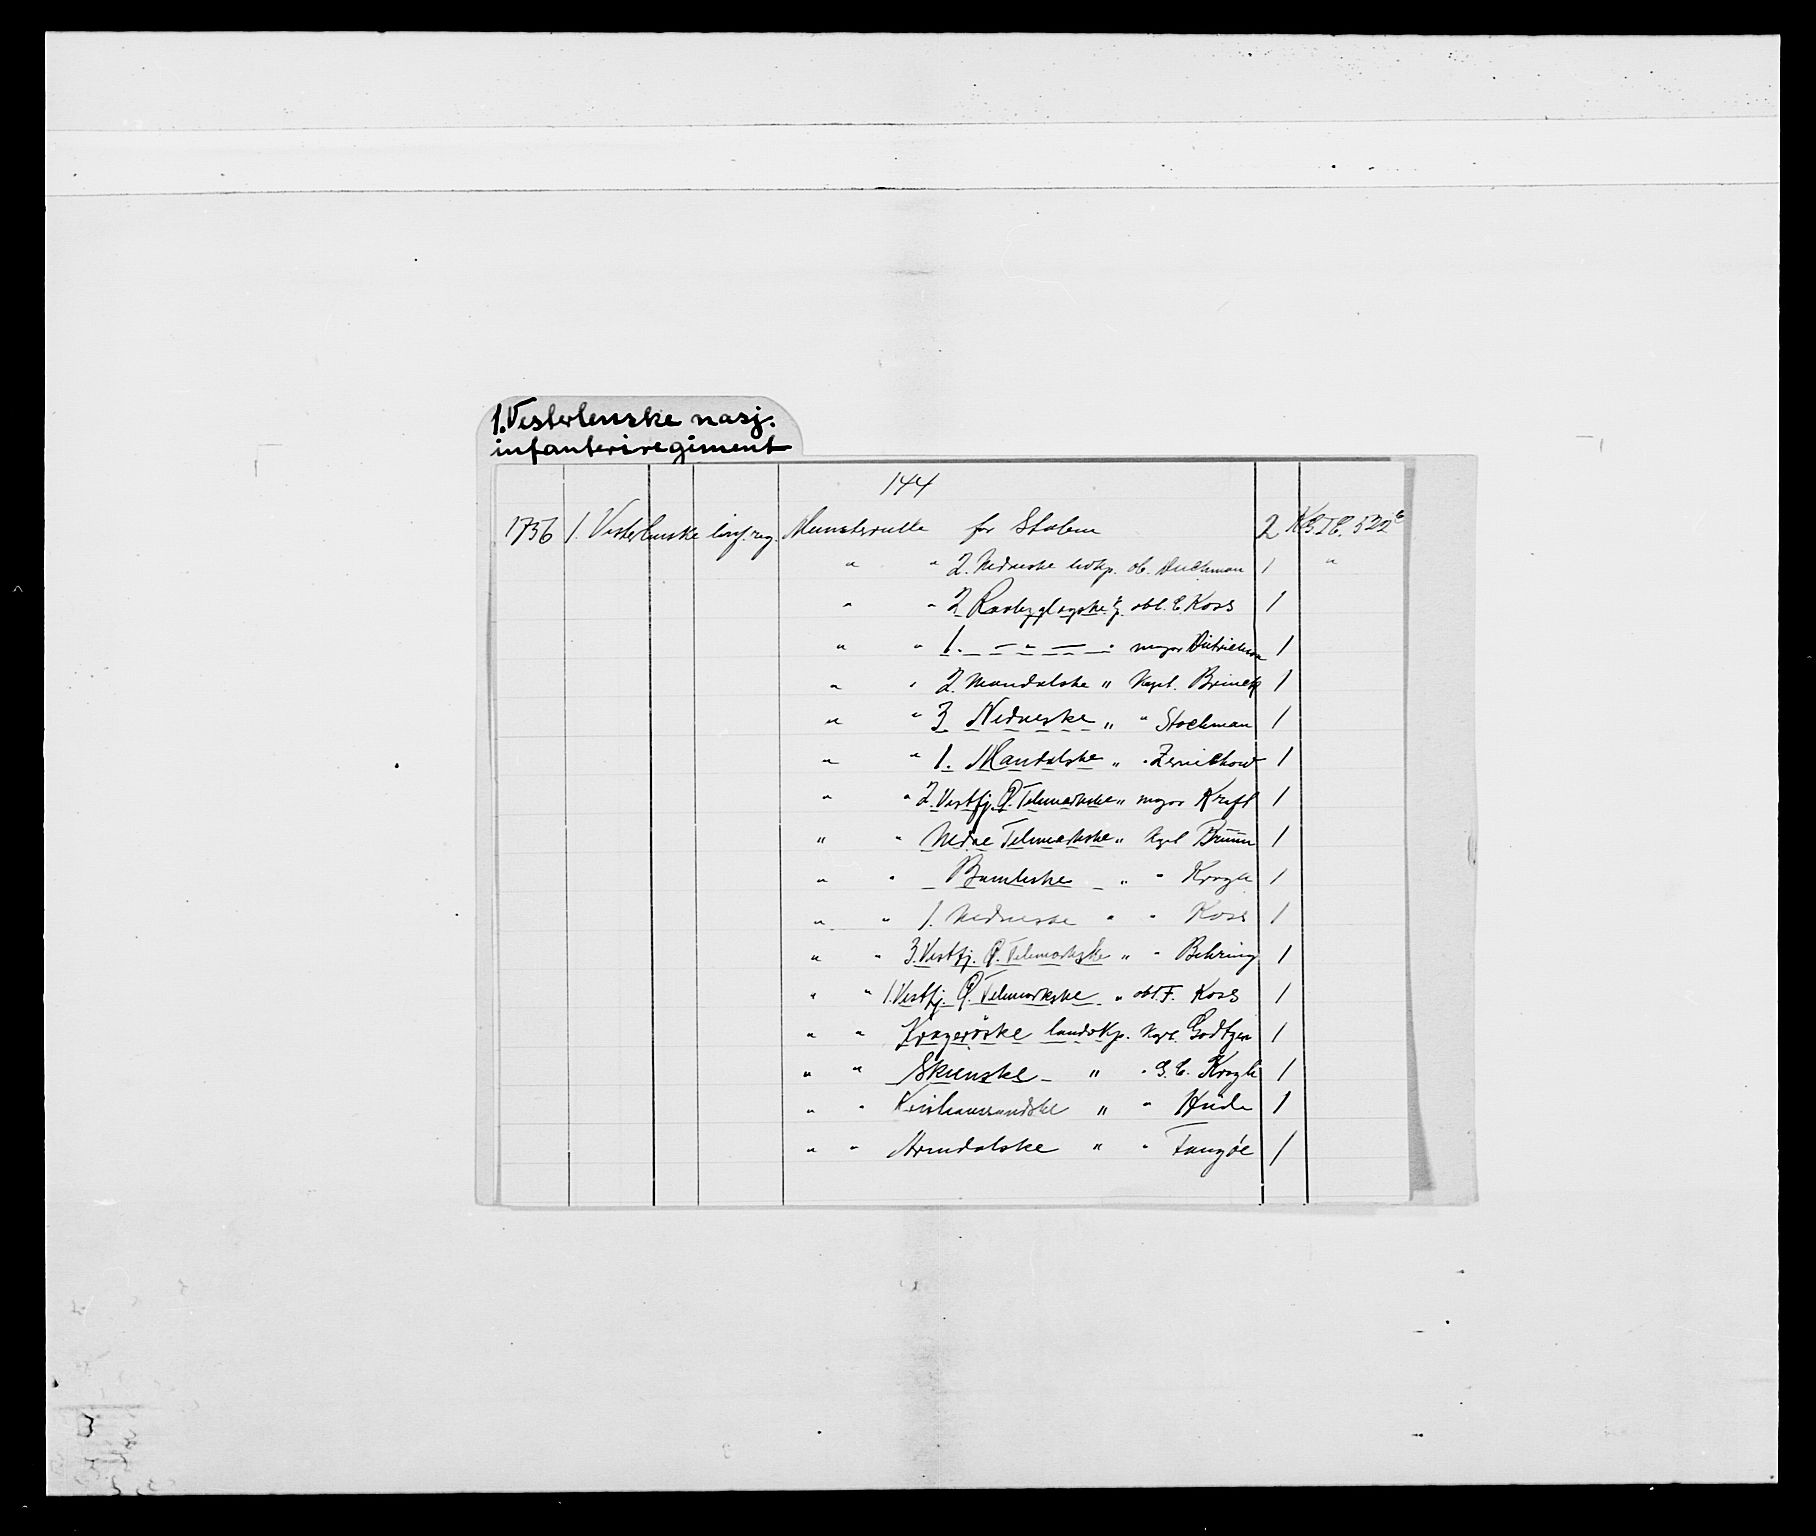 1. Vesterlenske nasj.
infanteriregiment
144
1756 1. Vesterlenske inf. reg. Munsterrulle for Staben 2
" " 2. Nedneske livkp. ob. 1 "
" " 2 Raabygdlagske " obl. E. Koss 1
" " 1. — " — " major 1
" " 2. Mandalske " Kapt. Brinck 1
" " 3 Nedneske " " Stockman 1
" " 1. Mandalske " " Zernichow 1
" " 2. Vestfj. Ø. Telemarkske " major Kraft 1
" " Nedre Telemarkske " Kapt Bruun 1
" " Bambleske " " Krogh 1
" " 1. Nedneske " " Koss 1
" " 3. Vestfj. Ø. Telemarkske " " Behring 1
" " 1. Vestfj. Ø. Telemarkske " obl. F. Koss 1
" " Kragerøske landvkp. Kapt. Godtzen 1
" " Skienske " " G. C. Krogh 1
" " Kristianssandske " " Hude 1
" " Arendalske " " Fangøe 1